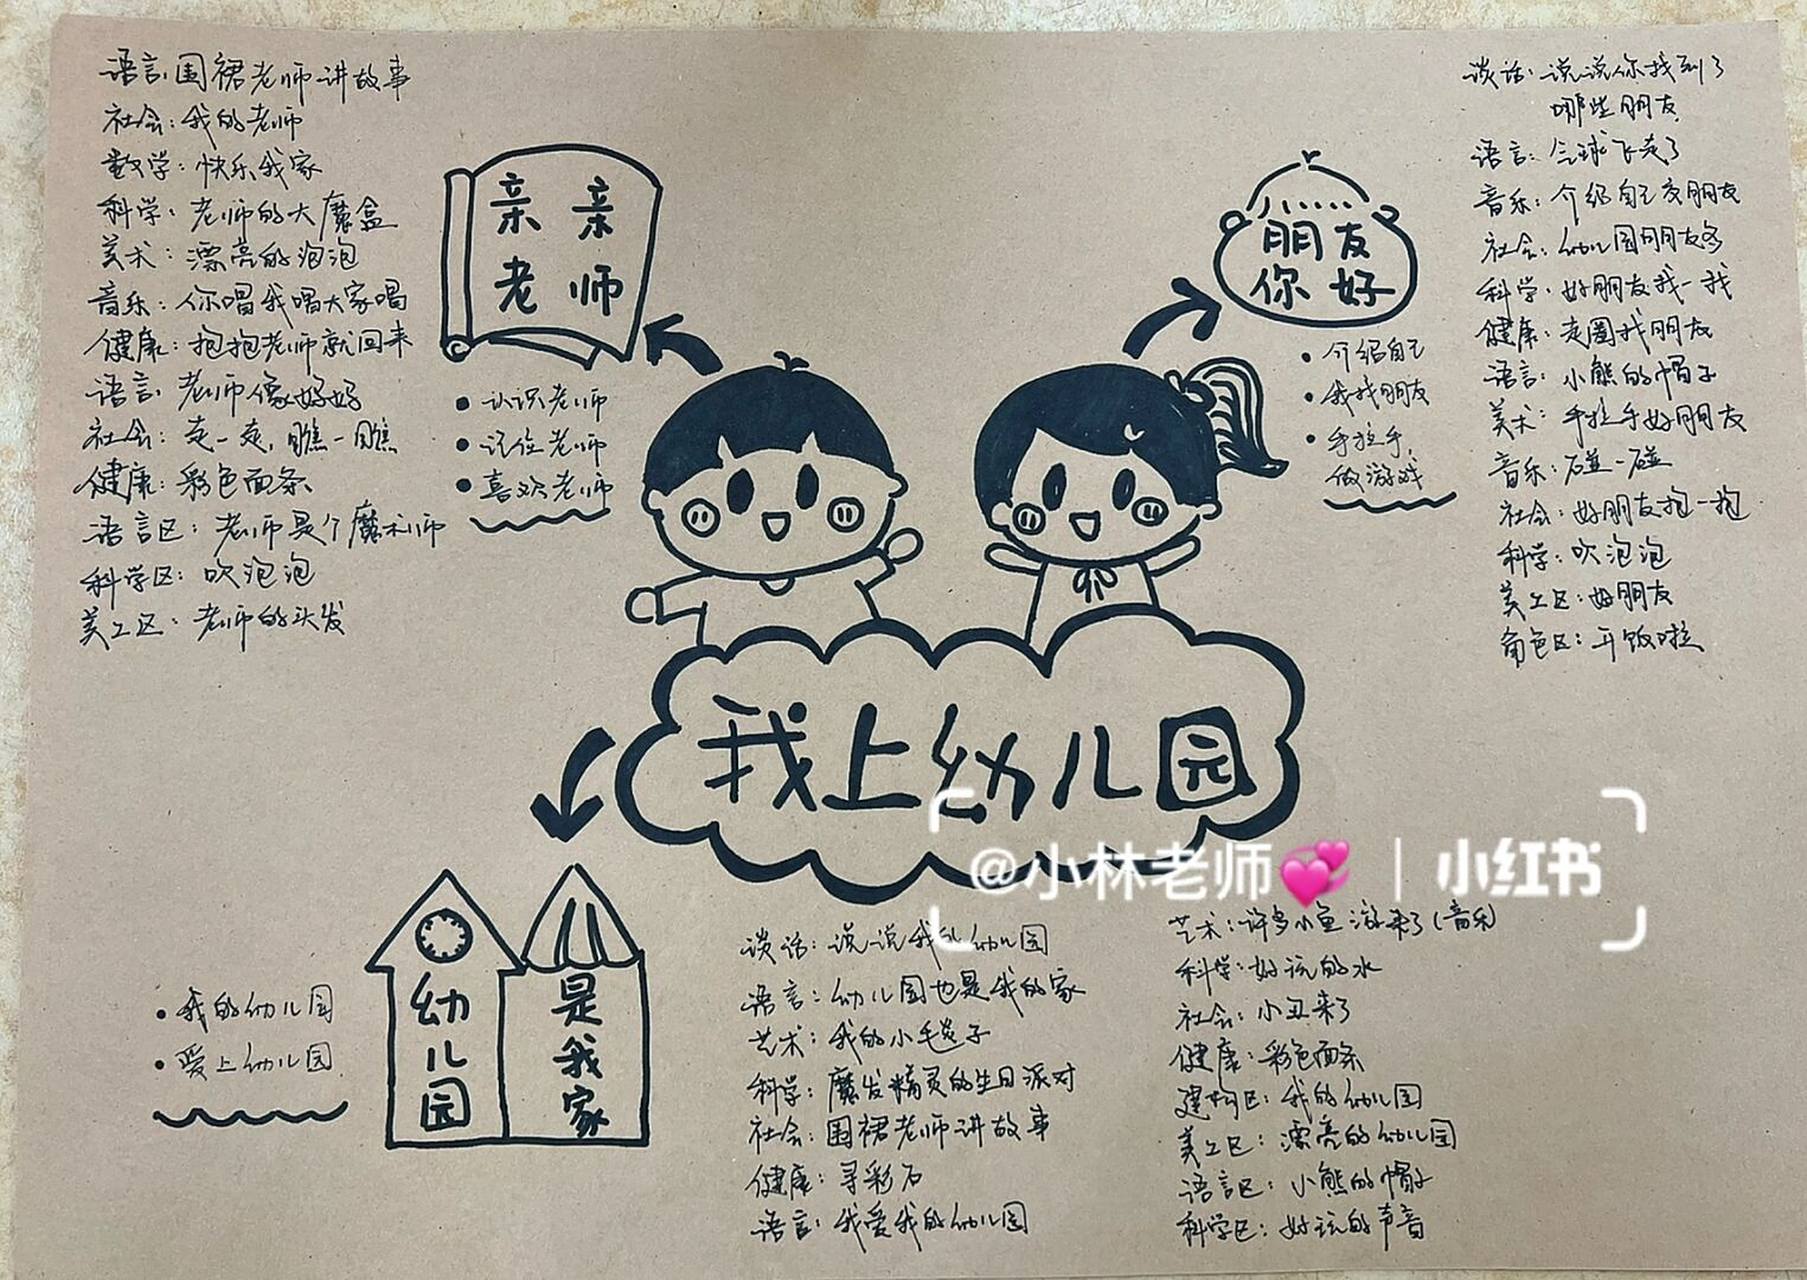 语言：围裙老师讲故事
社会：我的老师
数学：快乐我家
科学：老师的大魔盒
美术：漂亮的泡泡
音乐：你唱我唱大家唱
健康：抱抱老师就回来
语言：老师像妈妈
社会：走一走，瞧一瞧
健康：彩色面条
语言区：老师是个魔术师
科学区：吹泡泡
美工区：老师的头发
亲亲
老师
• 认识老师
• 记住老师
• 喜欢老师
朋友
你好
• 介绍自己
• 我找朋友
• 手拉手
做游戏
谈话：说说你找到了
哪些朋友
语言：气球飞走了
音乐：介绍自己交朋友
社会：幼儿园朋友多
科学：好朋友找一找
健康：走圈找朋友
语言：小熊的帽子
美术：手拉手好朋友
音乐：碰一碰
社会：好朋友抱一抱
科学：吹泡泡
美工区：好朋友
角色区：开饭啦
我上幼儿园
@小林老师💞｜小红书
幼儿园
是我家
• 我的幼儿园
• 爱上幼儿园
谈话：说说我的幼儿园
语言：幼儿园也是我的家
艺术：我的小毛毯子
科学：魔发精灵的生日派对
社会：围裙老师讲故事
健康：寻彩石
语言：我爱我的幼儿园
艺术：许多小鱼游来了（音乐）
科学：好玩的水
社会：小丑来了
健康：彩色面条
建构区：我的幼儿园
美工区：漂亮的幼儿园
语言区：小熊的帽子
科学区：好玩的声音